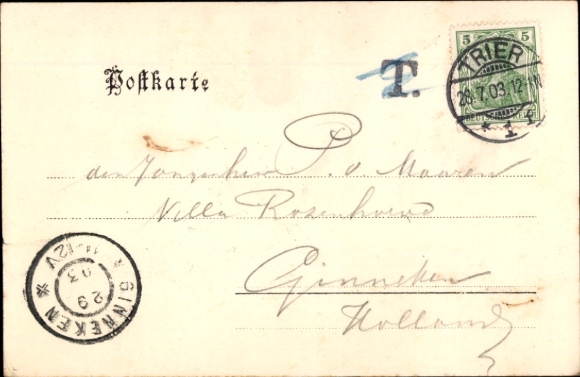 Postkarte
T.
5 5
TRIER
28.7.03.12-1N
* 1 f
den Jongeheer P. v. Maaren
Villa Rosenhoeve
Ginneken
Holland
GINNEKEN
29
03
11-12V